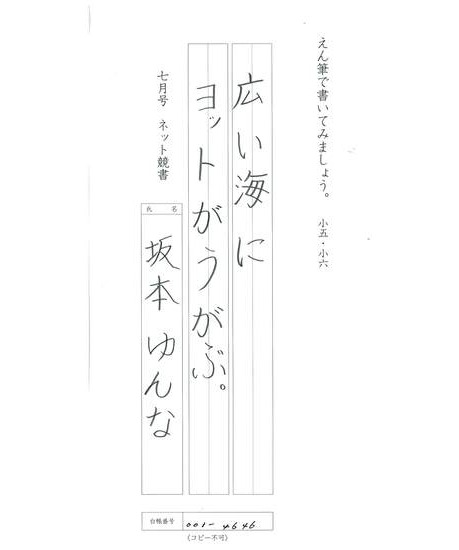 えん筆で書いてみましょう。 小五・小六
広い海に
ヨットがうがぶ。
七月号 ネット競書
氏名
坂本 ゆんな
台帳番号 001-4646
(コピー不可)